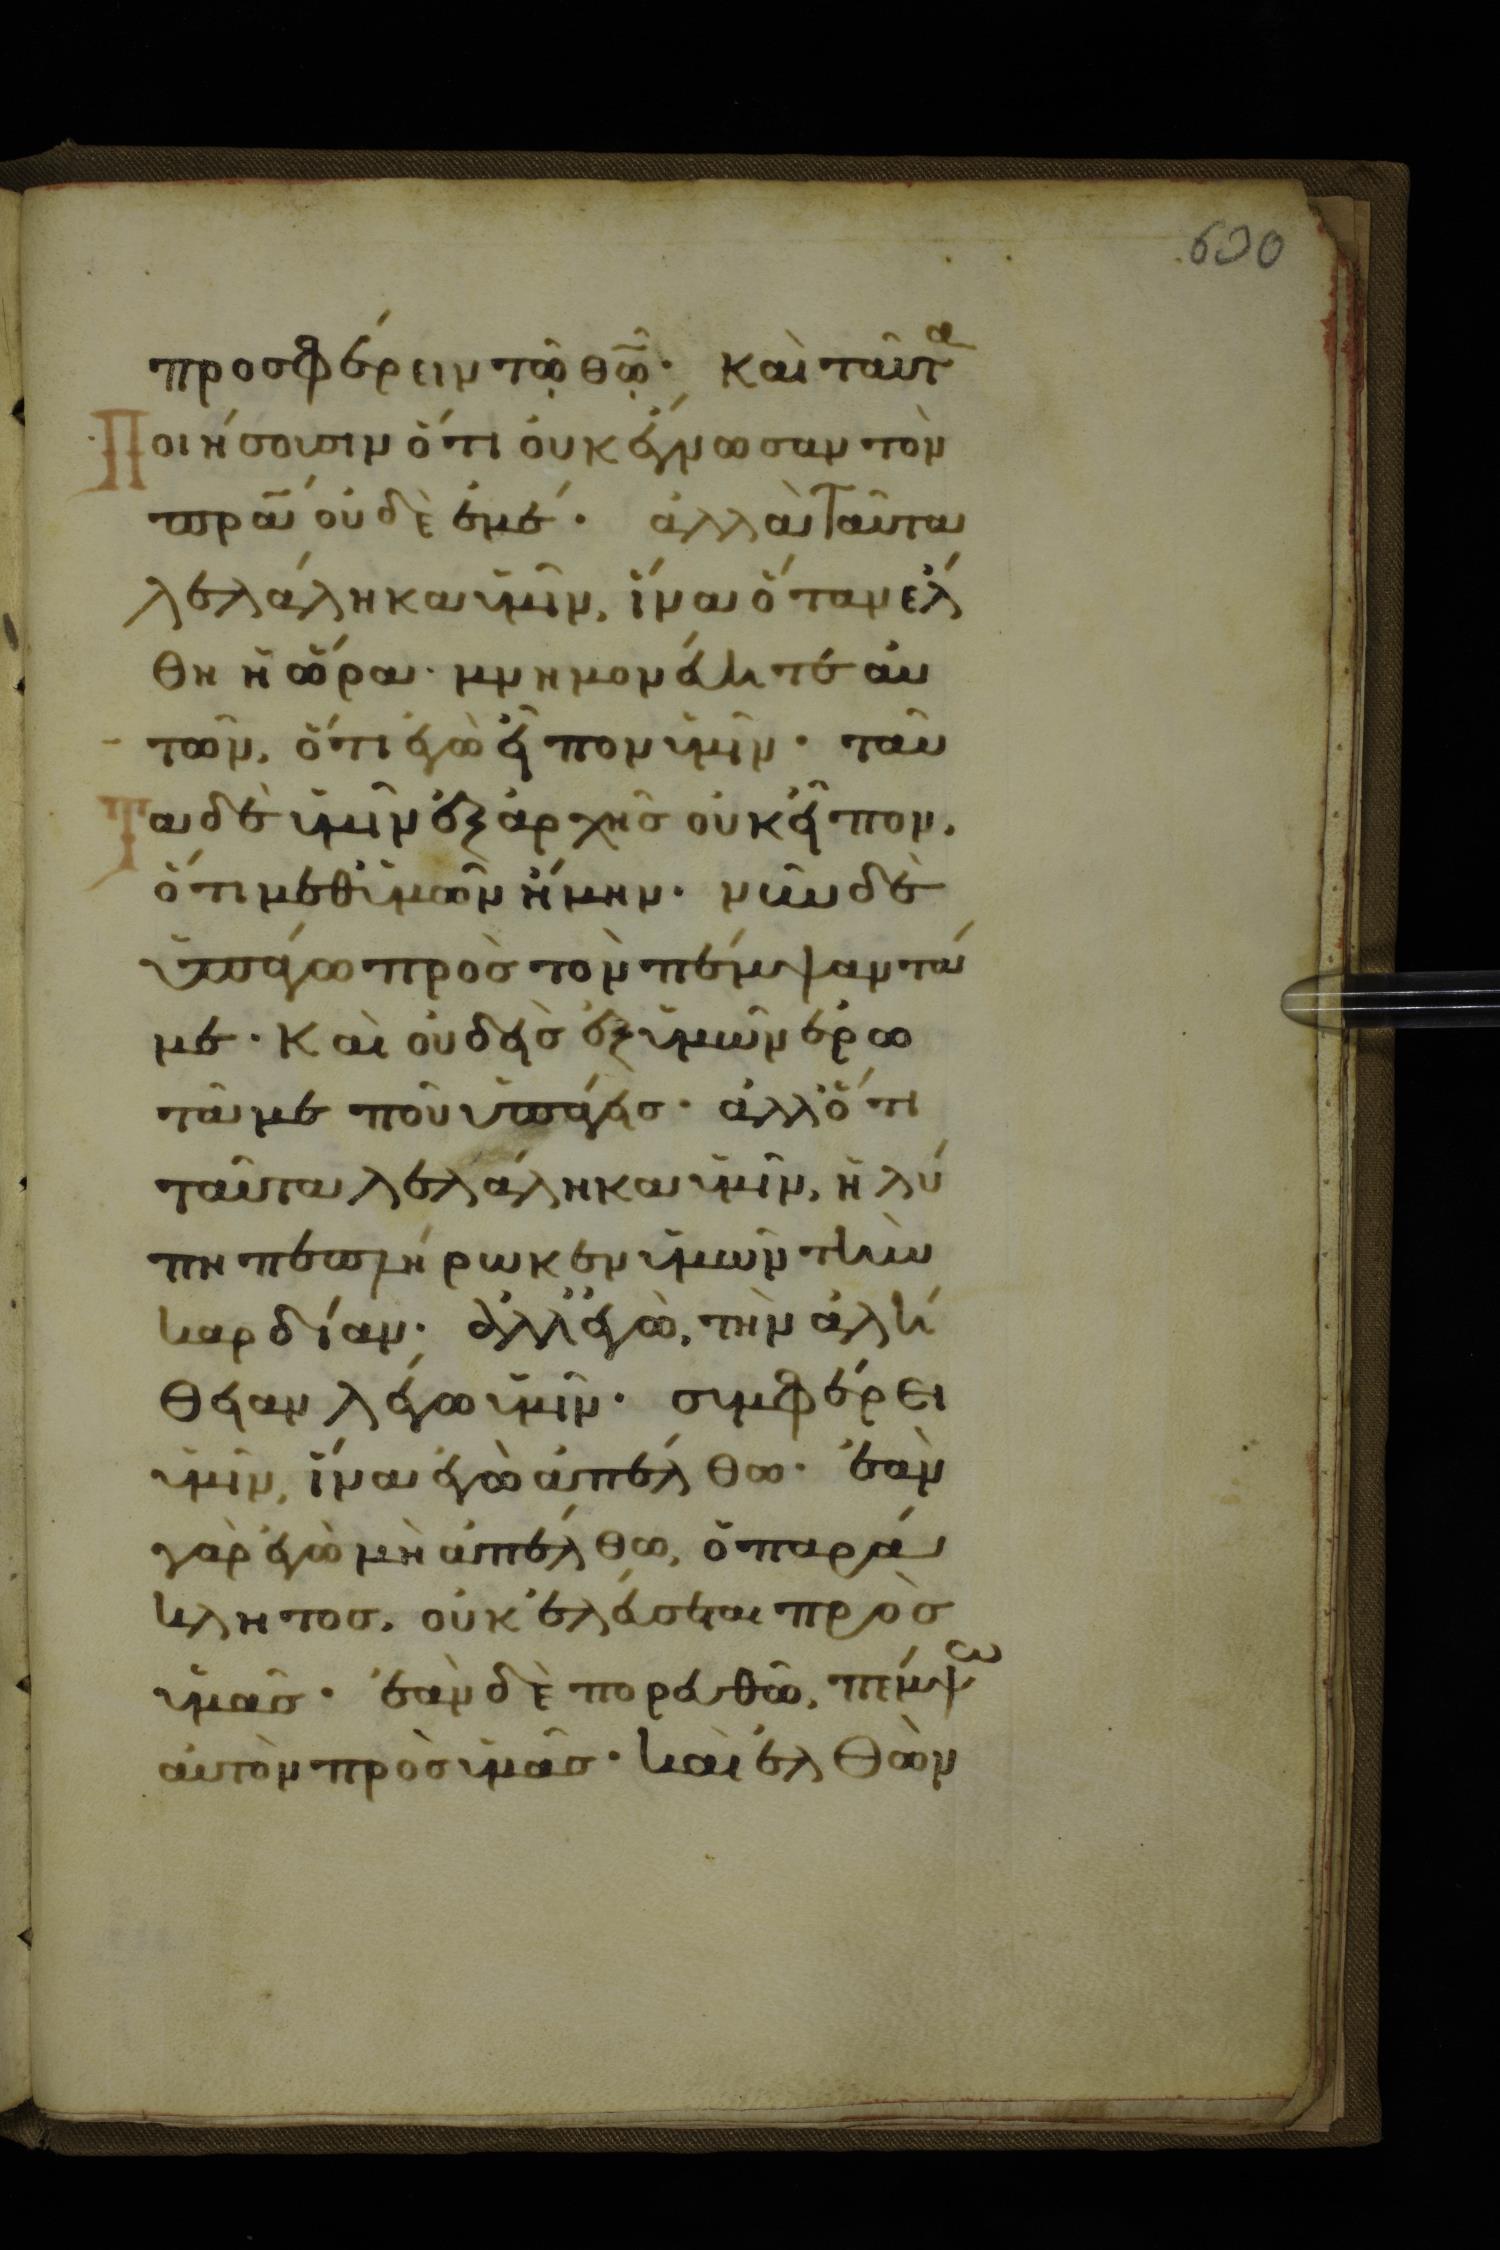 600
προσφέρειν τῶ θῶ· καὶ ταῦτα
Ποιήσουσιν ὅτι οὐκ ἔγνωσαν τὸν
πρα οὐδὲ ἐμέ· ἀλλὰ ταῦτα
λελάληκα ὑμῖν, ἵνα ὅταν ἔλ
θη ἡ ὥρα· μνημονεύητε αὐ
τῶν, ὅτι ἐγὼ εἶπον ὑμῖν· ταῦ
Τα δὲ ὑμῖν ἐξ ἀρχῆς οὐκ εἶπον,
ὅτι μεθ ὑμῶν ἤμην· νῦν δὲ
ὑπάγω πρὸς τὸν πέμψαντά
με· Καὶ οὐδεὶς ἐξ ὑμῶν ἐρω
τᾶ με ποῦ ὑπάγεις· ἀλλ ὅτι
ταῦτα λελάληκα ὑμῖν, ἡ λύ
πη πεπλήρωκεν ὑμῶν τὴν
καρδίαν· ἀλλ ἐγὼ, τὴν ἀλή
θειαν λέγω ὑμῖν· συμφέρει
ὑμῖν, ἵνα ἐγὼ ἀπέλθω· ἐὰν
γὰρ ἐγὼ μὴ ἀπέλθω, ὁ παρά
κλητος, οὐκ ἐλεύσεται πρὸς
ὑμᾶς· ἐὰν δὲ πορευθῶ, πέμψω
αὐτὸν πρὸς ὑμᾶς· καὶ ἐλθὼν